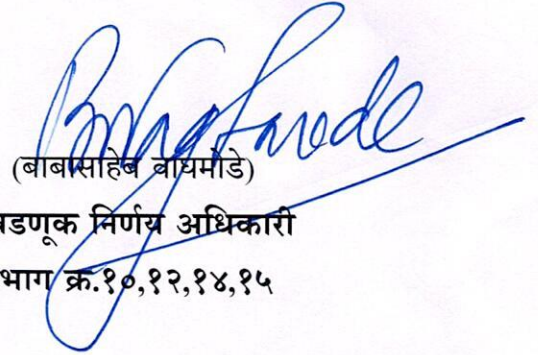 (बाबासाहेब वाघमोडे)
वडणूक निर्णय अधिकारी
भाग क्र.१०,१२,१४,१५